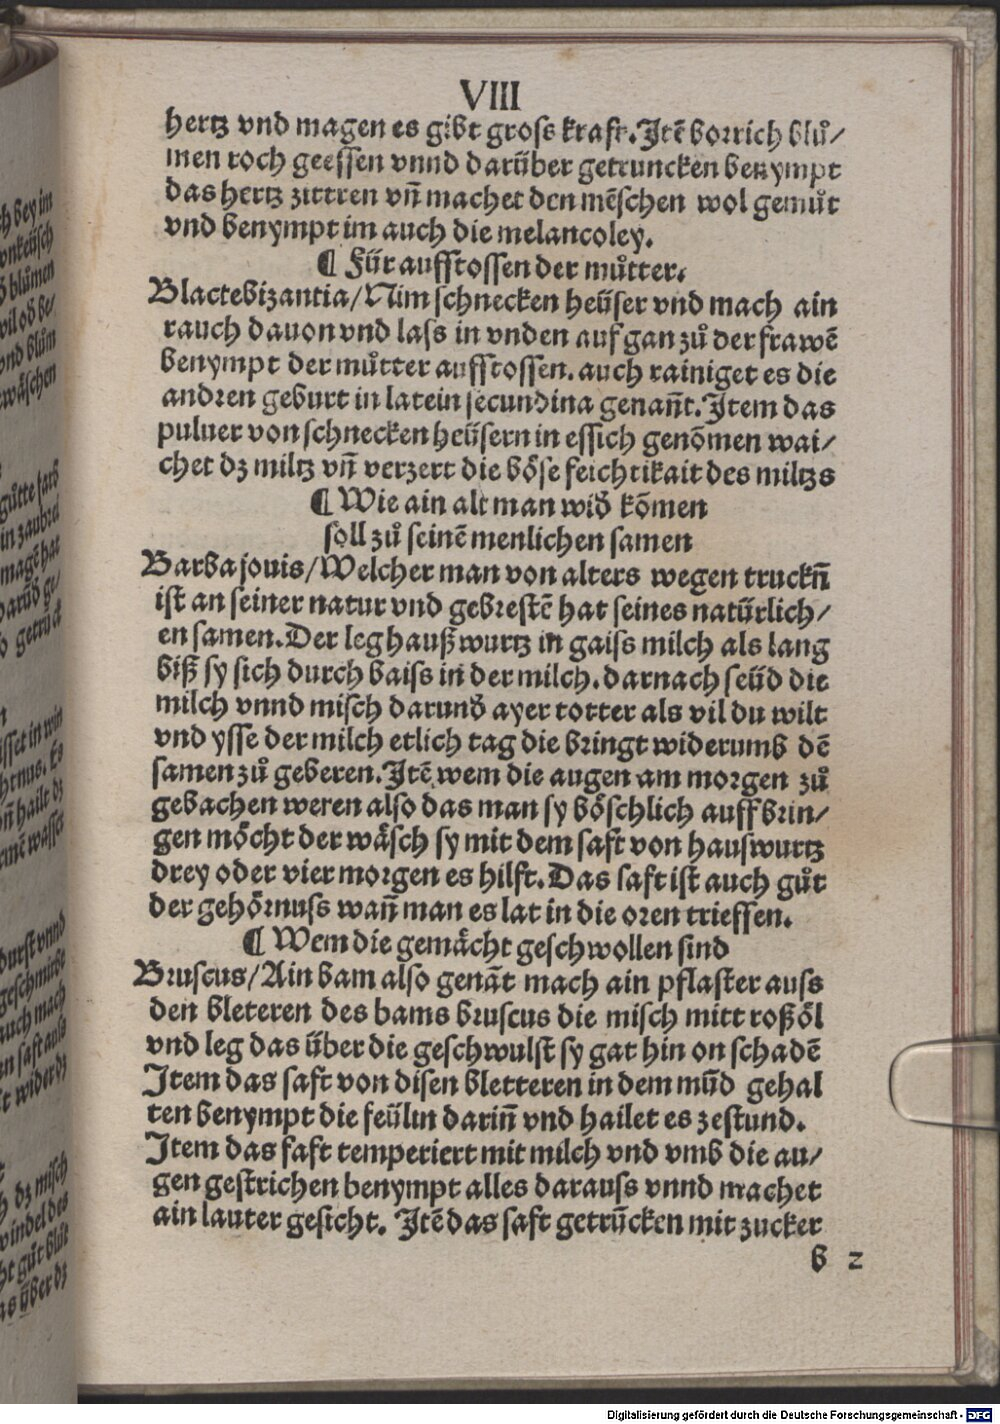 VIII
hertz vnd magen es gibt gross kraft. Jtē borrich blů/
men roch geessen vnnd darüber getruncken benympt
das hertz zittren vn̄ machet den mēschen wol gemůt
vnd benympt im auch die melancoley.
¶ Für aufstossen der můtter.
Blactebizantia/Nim schnecken heüser vnd mach ain
rauch dauon vnd lass in vnden auf gan zů der frawē
benympt der můtter aufstossen. auch rainiget es die
andren geburt in latein secundina genan̄t. Jtem das
puluer von schnecken heüsern in essich genōmen wai/
chet dz miltz vn̄ verzert die böse feichtikait des miltzs
¶ Wie ain alt man wid̄ kōmen
soll zů seinē menlichen samen
Barba jouis/Welcher man von alters wegen truckn̄
ist an seiner natur vnd gebrestē hat seines natürlich/
en samen. Der leg haußwurtz in gaiss milch als lang
biß sy sich durch baiss in der milch. darnach seüd die
milch vnnd misch darund̄ ayer totter als vil du wilt
vnd ysse der milch etlich tag die bringt widerumb dē
samen zů geberen. Jtē wem die augen am morgen zů
gebachen weren also das man sy böschlich auff brin/
gen möcht der wäsch sy mit dem saft von hauswurtz
drey oder vier morgen es hilft. Das saft ist auch gůt
der gehörnuss wan̄ man es lat in die oren trieffen.
¶ Wem die gemächt geschwollen sind
Bruscus/Ain bam also genāt mach ain pflaster auss
den bleteren des bams bruscus die misch mitt roßöl
vnd leg das über die geschwulst sy gat hin on schadē
Jtem das saft von disen bletteren in dem mūd gehal
ten benympt die feülin darin̄ vnd hailet es zestund.
Jtem das saft temperiert mit milch vnd vmb die au/
gen gestrichen benympt alles darauss vnnd machet
ain lauter gesicht. Jtē das saft getrūcken mit zucker
b 2
ch bey im
vnkeüsch
d̄ blůmen
vil od̄ be/
vnd blům
ewäschen
gůtte farb
in zaubrei
magē hat
darūd̄ ge/
o getrůckt
isset in win
chtnus. Es
vn̄ hailt dz
emē wasser
durst vnnd
geschmirbe
auch mach
en saft auss
t wider dz
h dz misch
windel des
ht gůt blůt
as über dz
Digitalisierung gefördert durch die Deutsche Forschungsgemeinschaft - DFG